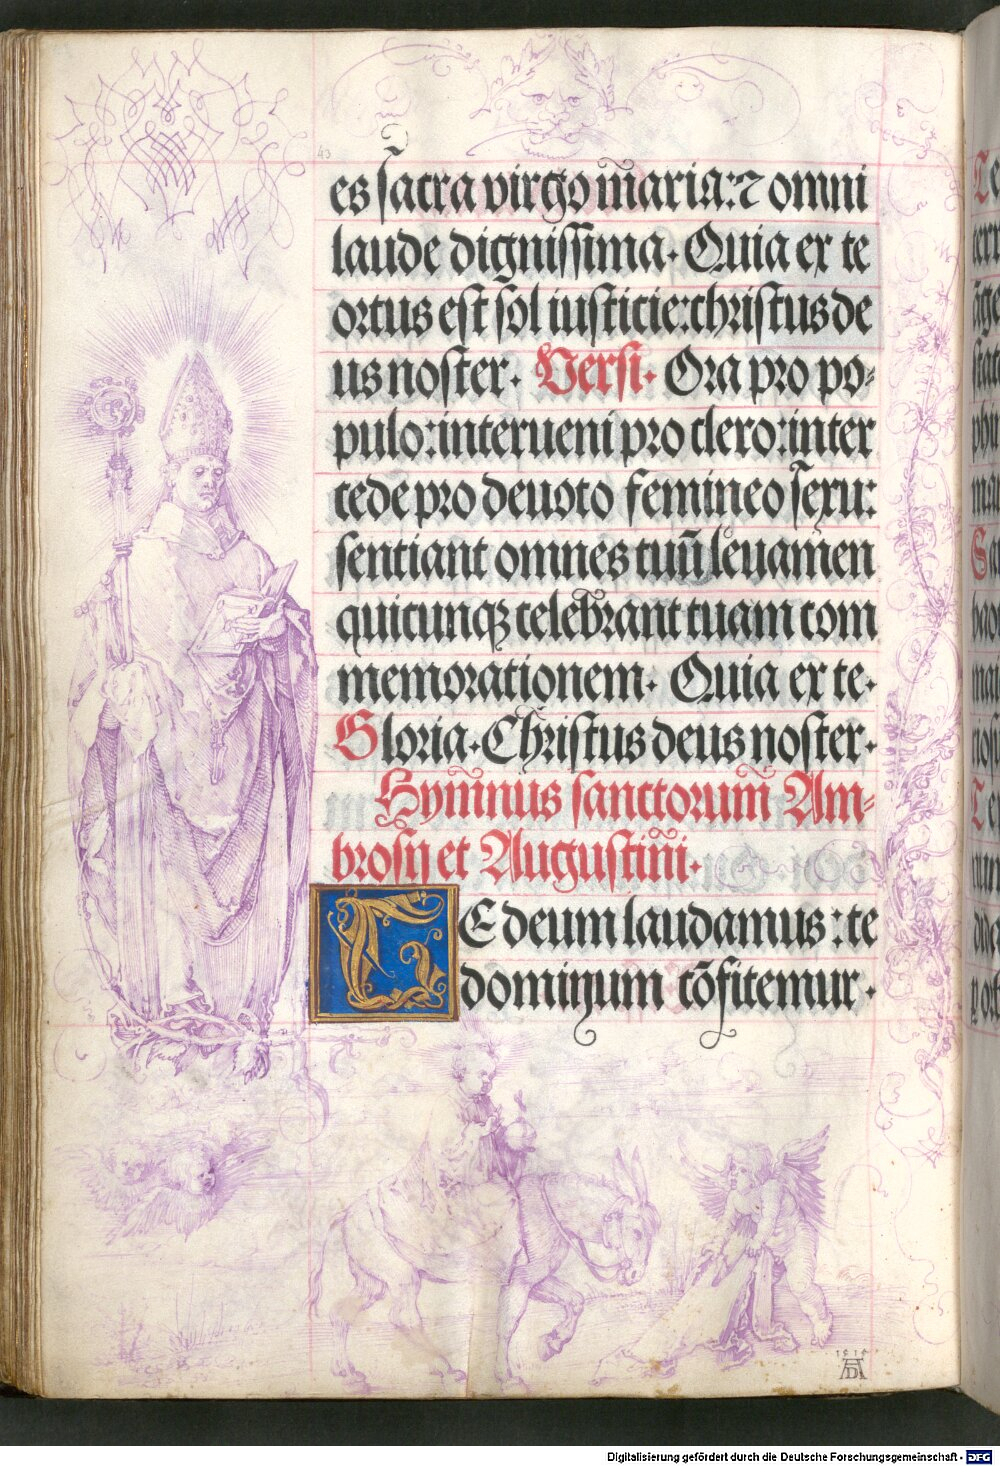 43
es sacra virgo maria: ⁊ omni
laude dignissima. Quia ex te
ortus est sol iusticie: christus de
us noster. Versi. Ora pro po-
pulo: interueni pro clero: inter
cede pro deuoto femineo sexu:
sentiant omnes tuū leuamen
quicunqꝫ celebrant tuam com
memorationem. Quia ex te.
Gloria. Christus deus noster.
Hymnus sanctorum Am-
brosij et Augustini.
TE deum laudamus: te
dominum cōfitemur.
1515
AD
Digitalisierung gefördert durch die Deutsche Forschungsgemeinschaft - DFG